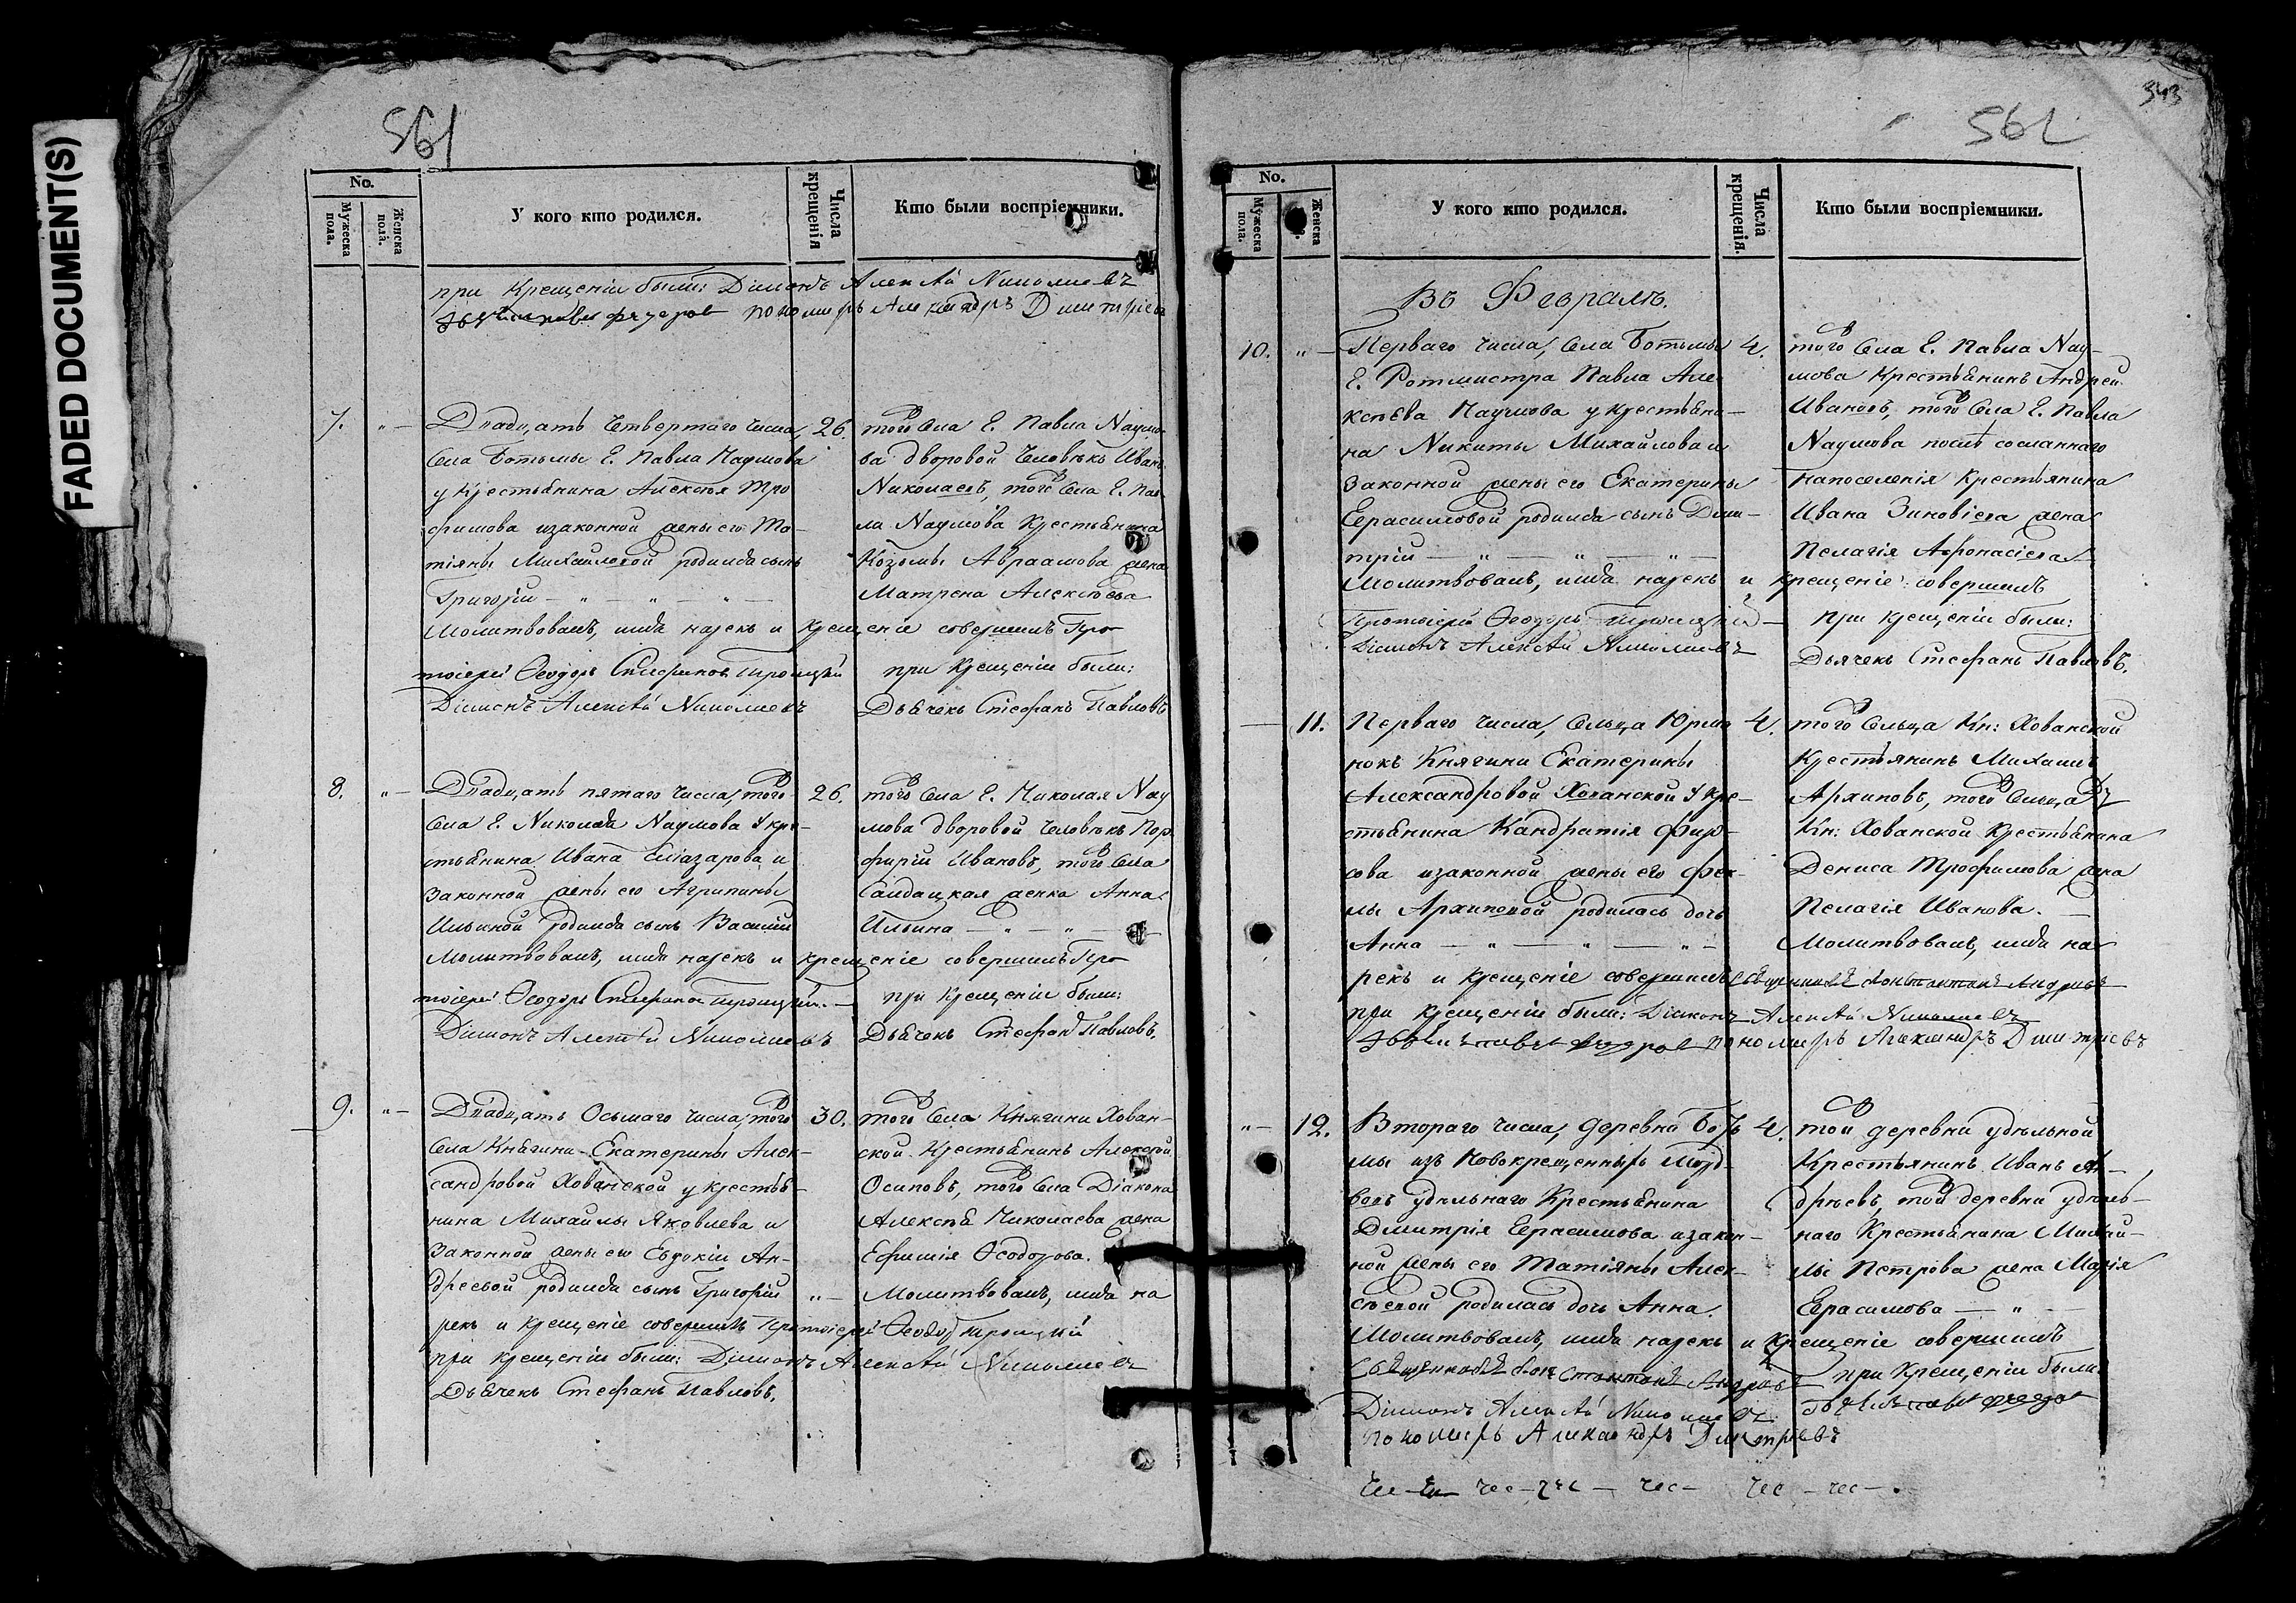 FADED DOCUMENT(S)
561
No.
Мужеска пола.
Женска пола.
У кого кто родился.
Числа крещенія
Кто были воспріемники.
при Крещеніи были: Діаконъ Алексѣй Николаевъ
пономарь Александръ Дмитріевъ
7. " — Двадцать Четвертаго числа, 26. того Села Г. Павла Наумо-
Села Ботьмы Г. Павла Наумова ва дворовой Человѣкъ Иванъ
у Крестьянина Алексѣя Тро Николаевъ, того Села Г. Пав-
фимова изаконной жены его Та- ла Наумова Крестьянина
тіяны Михайловой родился сынъ Козьмы Авраамова жена
Григорій — " — " — " — Матрена Алексѣева
Молитвовалъ, имя нарекъ и крещеніе совершилъ Про
тоіерей Ѳеодоръ Стефановъ Троицкій при Крещеніи были:
Діаконъ Алексѣй Николаевъ Дьячекъ Стефанъ Павловъ
8. " — Двадцать пятаго числа, того 26. того Села Г. Николая Нау
Села Г. Николая Наумова У кре- мова дворовой Человѣкъ Пор-
стьянина Ивана Елиазарова и фирій Ивановъ, того Села
Законной жены его Агрипины Салдацкая женка Анна
Ильиной родился сынъ Василій Ильина — " — " —
Молитвовалъ, имя нарекъ и крещеніе совершилъ Про
тоіерей Ѳеодоръ Стефановъ Троицкій. — при Крещеніи были:
Діаконъ Алексѣй Николаевъ Дьячекъ Стефанъ Павловъ.
9. " — Двадцать Осьмаго числа, того 30. того Села Княгини Хован-
Села Княгини Екатерины Алек- ской Крестьянинъ Алексѣй
сандровой Хованской у крестья- Осиповъ, того Села Діакона
нина Михайлы Яковлева и Алексѣя Николаева жена
Законной жены его Евдокіи Ан- Ефимія Ѳеодорова.
дреевой родился сынъ Григорій " — Молитвовалъ, имя на
рекъ и крещеніе совершилъ Протоіерей Ѳеодоръ Троицкій
при крещеніи были: Діаконъ Алексѣй Николаевъ
Дьячекъ Стефанъ Павловъ.
343
562
No.
Мужеска пола.
Женска
У кого кто родился.
Числа крещенія.
Кто были воспріемники.
Въ Февралѣ.
10. " — Перваго числа, Села Ботьмы 4. того Села Г. Павла Нау-
Г. Ротмистра Павла Але- мова Крестьянинъ Андрей
ксѣева Наумова у крестьяни- Ивановъ, того Села Г. Павла
на Никиты Михайлова и Наумова послѣ сосланнаго
Законной жены его Екатерины Напоселенія Крестьянина
Герасимовой родился сынъ Дми- Ивана Зиновіева жена
трій — " — " — " — Пелагія Афонасіева
Молитвовалъ, имя нарекъ и крещеніе совершилъ
Протоіерей Ѳеодоръ Троицкій — при крещеніи были:
Діаконъ Алексѣй Николаевъ Дьячекъ Стефанъ Павловъ.
— 11. Перваго числа, Сельца Юрма 4. того Сельца Кн: Хованской
нокъ Княгини Екатерины Крестьянинъ Михаилъ
Александровой Хованской У кре- Архиповъ, того Сельца
стьянина Кандратія Фир- Кн: Хованской Крестьянина
сова изаконной жены его Фек- Дениса Трофимова жена
лы Архиповой родилась дочь Пелагія Иванова. —
Анна — " — " — " — Молитвовалъ, имя на
рекъ и крещеніе совершилъ Священникъ Константинъ Андреевъ
при крещеніи были: Діаконъ Алексѣй Николаевъ
пономарь Александръ Дмитріевъ
" — 12. Втораго числа, деревни Боть 4. той деревни удѣльной
мы изъ Новокрещенныхъ Морд- Крестьянинъ Иванъ Ан-
вовъ удѣльнаго Крестьянина дрѣевъ, той деревни удѣль-
Дмитрія Герасимова изакон- наго Крестьянина Михай-
ной жены его Татіяны Алек- лы Петрова жена Марія
сѣевой родилась дочь Анна. Герасимова — " —
Молитвовалъ, имя нарекъ и крещеніе совершилъ
Священникъ Константинъ Андреевъ при Крещеніи были
Діаконъ Алексѣй Николаевъ
пономарь Александръ Дмитріевъ